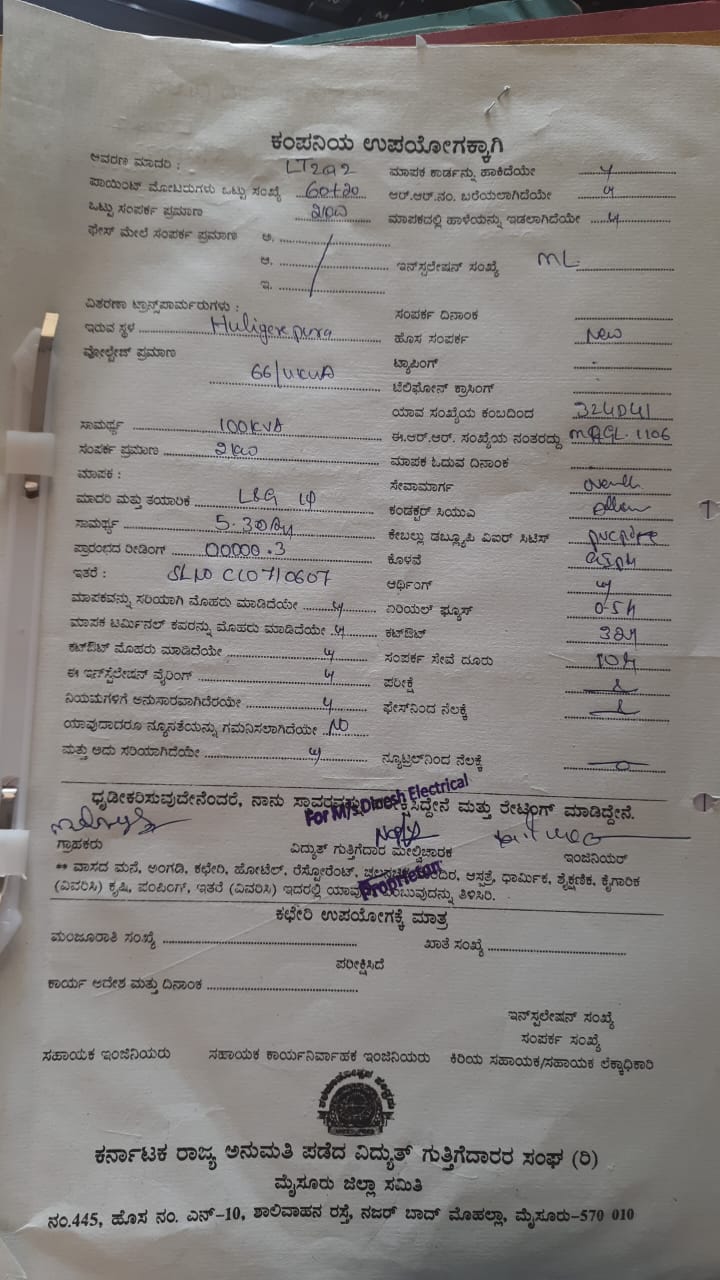 ಕಂಪನಿಯ ಉಪಯೋಗಕ್ಕಾಗಿ
ಆವರಣ ಮಾದರಿ : LT2a2
ಪಾಯಿಂಟ್ ಮೋಟರುಗಳು ಒಟ್ಟು ಸಂಖ್ಯೆ 60+20
ಒಟ್ಟು ಸಂಪರ್ಕ ಪ್ರಮಾಣ 2kw
ಫೇಸ್ ಮೇಲೆ ಸಂಪರ್ಕ ಪ್ರಮಾಣ ಅ.
ಆ.
ಇ.
ಮಾಪಕ ಕಾರ್ಡನ್ನು ಹಾಕಿದೆಯೇ y
ಆರ್.ಆರ್.ನಂ. ಬರೆಯಲಾಗಿದೆಯೇ y
ಮಾಪಕದಲ್ಲಿ ಹಾಳೆಯನ್ನು ಇಡಲಾಗಿದೆಯೇ y
ಇನ್‌ಸ್ಟಲೇಷನ್ ಸಂಖ್ಯೆ ML
ವಿತರಣಾ ಟ್ರಾನ್ಸ್‌ಪಾರ್ಮರುಗಳು :
ಇರುವ ಸ್ಥಳ Huligerepura
ವೋಲ್ಟೇಜ್ ಪ್ರಮಾಣ
ಸಾಮರ್ಥ್ಯ 100KVA
ಸಂಪರ್ಕ ಪ್ರಮಾಣ 2kw
ಮಾಪಕ :
ಮಾದರಿ ಮತ್ತು ತಯಾರಿಕ L&G 1φ
ಸಾಮರ್ಥ್ಯ 5-30A
ಪ್ರಾರಂಭದ ರೀಡಿಂಗ್ 00000.3
ಇತರೆ : SLNO C10710607
ಮಾಪಕವನ್ನು ಸರಿಯಾಗಿ ಮೊಹರು ಮಾಡಿದೆಯೇ y
ಮಾಪಕ ಟರ್ಮಿನಲ್ ಕವರನ್ನು ಮೊಹರು ಮಾಡಿದೆಯೇ y
ಕಟ್‌ಔಟ್ ಮೊಹರು ಮಾಡಿದೆಯೇ y
ಈ ಇನ್‌ಸ್ಟಲೇಷನ್ ವೈರಿಂಗ್ y
ನಿಯಮಗಳಿಗೆ ಅನುಸಾರವಾಗಿದೆಯೇ y
ಯಾವುದಾದರೂ ನ್ಯೂನತೆಯನ್ನು ಗಮನಿಸಲಾಗಿದೆಯೇ NO
ಮತ್ತು ಅದು ಸರಿಯಾಗಿದೆಯೇ y
ಸಂಪರ್ಕ ದಿನಾಂಕ
ಹೊಸ ಸಂಪರ್ಕ New
ಟ್ಯಾಪಿಂಗ್ -
ಟೆಲಿಫೋನ್ ಕ್ರಾಸಿಂಗ್
ಯಾವ ಸಂಖ್ಯೆಯ ಕಂಬದಿಂದ 324041
ಈ.ಆರ್.ಆರ್. ಸಂಖ್ಯೆಯ ನಂತರದ್ದು
ಮಾಪಕ ಓದುವ ದಿನಾಂಕ
ಸೇವಾಮಾರ್ಗ
ಕಂಡಕ್ಟರ್ ಸಿಯುಎ
ಕೇಬಲ್ಲು ಡಬ್ಲ್ಯೂಪಿ ವಿಐರ್ ಸಿಟಿಸ್
ಕೊಳವೆ
ಆರ್ಥಿಂಗ್ y
ಏರಿಯಲ್ ಫ್ಯೂಸ್
ಕಟ್‌ಔಟ್
ಸಂಪರ್ಕ ಸೇವೆ ದೂರು
ಪರೀಕ್ಷೆ
ಫೇಸ್‌ನಿಂದ ನೆಲಕ್ಕೆ
ನ್ಯೂಟ್ರಲ್‌ನಿಂದ ನೆಲಕ್ಕೆ
ಧೃಡೀಕರಿಸುವುದೇನೆಂದರೆ, ನಾನು ಮತ್ತು ರೇಟಿಂಗ್ ಮಾಡಿದ್ದೇನೆ.
For M/s Dinesh Electrical
Proprietor
ಗ್ರಾಹಕರು ವಿದ್ಯುತ್ ಗುತ್ತಿಗೆದಾರ ಮೇಲ್ವಿಚಾರಕ ಇಂಜಿನಿಯರ್
** ವಾಸದ ಮನೆ, ಅಂಗಡಿ, ಕಛೇರಿ, ಹೋಟೆಲ್, ರೆಸ್ಟೋರೆಂಟ್, ಆಸ್ಪತ್ರೆ, ಧಾರ್ಮಿಕ, ಶೈಕ್ಷಣಿಕ, ಕೈಗಾರಿಕ
(ವಿವರಿಸಿ) ಕೃಷಿ, ಪಂಪಿಂಗ್, ಇತರೆ (ವಿವರಿಸಿ) ಇದರಲ್ಲಿ ತಿಳಿಸಿರಿ.
ಕಛೇರಿ ಉಪಯೋಗಕ್ಕೆ ಮಾತ್ರ
ಮಂಜೂರಾತಿ ಸಂಖ್ಯೆ ಖಾತೆ ಸಂಖ್ಯೆ
ಪರೀಕ್ಷಿಸಿದೆ
ಕಾರ್ಯ ಆದೇಶ ಮತ್ತು ದಿನಾಂಕ
ಇನ್‌ಸ್ಟಲೇಷನ್ ಸಂಖ್ಯೆ
ಸಂಪರ್ಕ ಸಂಖ್ಯೆ
ಸಹಾಯಕ ಇಂಜಿನಿಯರು ಸಹಾಯಕ ಕಾರ್ಯನಿರ್ವಾಹಕ ಇಂಜಿನಿಯರು ಕಿರಿಯ ಸಹಾಯಕ/ಸಹಾಯಕ ಲೆಕ್ಕಾಧಿಕಾರಿ
ಕರ್ನಾಟಕ ರಾಜ್ಯ ಅನುಮತಿ ಪಡೆದ ವಿದ್ಯುತ್ ಗುತ್ತಿಗೆದಾರರ ಸಂಘ (ರಿ)
ಮೈಸೂರು ಜಿಲ್ಲಾ ಸಮಿತಿ
ನಂ.445, ಹೊಸ ನಂ. ಎನ್-10, ಶಾಲಿವಾಹನ ರಸ್ತೆ, ನಜರ್ ಬಾದ್ ಮೊಹಲ್ಲಾ, ಮೈಸೂರು-570 010